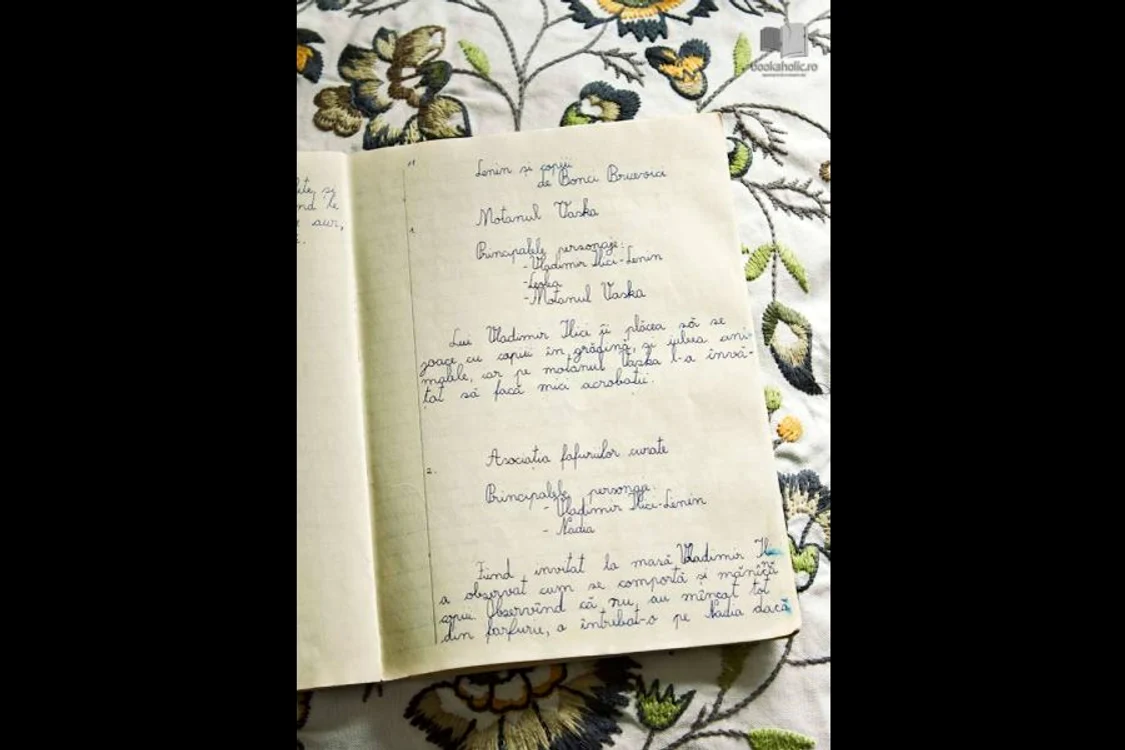 bookaholic.ro
lete, și
nd le
aur,
Lenin și copiii
de Bonci Bruevici
1.
Motanul Vaska
Principalele personaje:
- Vladimir Ilici-Lenin
-
- Motanul Vaska
Lui Vladimir Ilici îi plăcea să se
joace cu copiii în grădină, și iubea ani-
malele, iar pe motanul Vaska l-a învă-
țat să facă mici acrobații.
2.
Asociația fafuriilor curate
Principalele personaje:
- Vladimir Ilici-Lenin
- Nadia
Fiind invitat la masă Vladimir Ilici
a observat cum se comportă și mănîcă
copiii. Observînd că nu au mîncat tot
din farfurie, a întrebat-o pe Nadia dacă